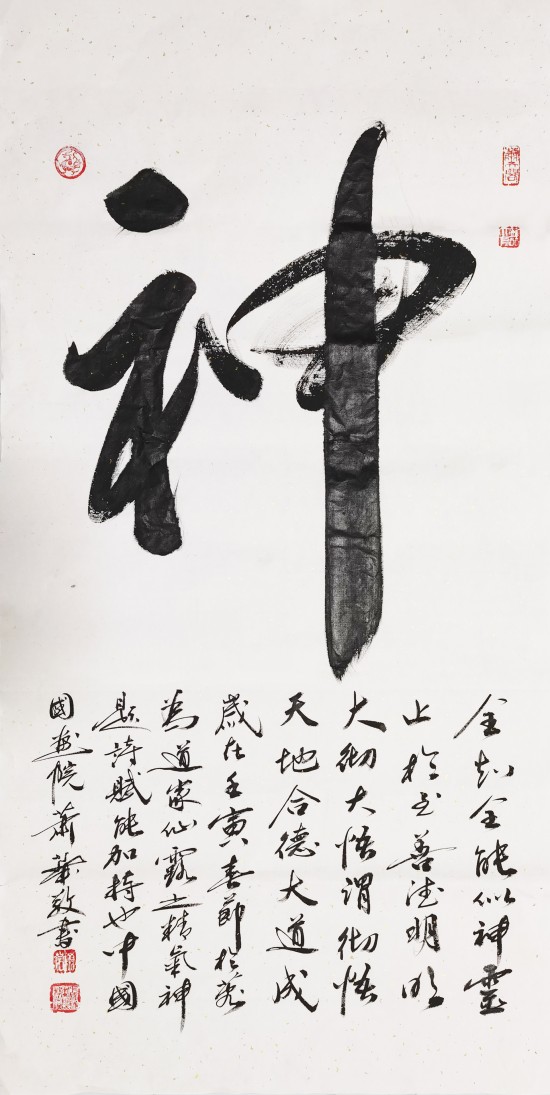 神
全知全能似神靈
止於至善德明明
大彻大悟謂彻悟
天地合德大道成
歲在壬寅春節於
為道家仙露之精氣神
題詩賦能加持也中國
國畫院蕭華敬書